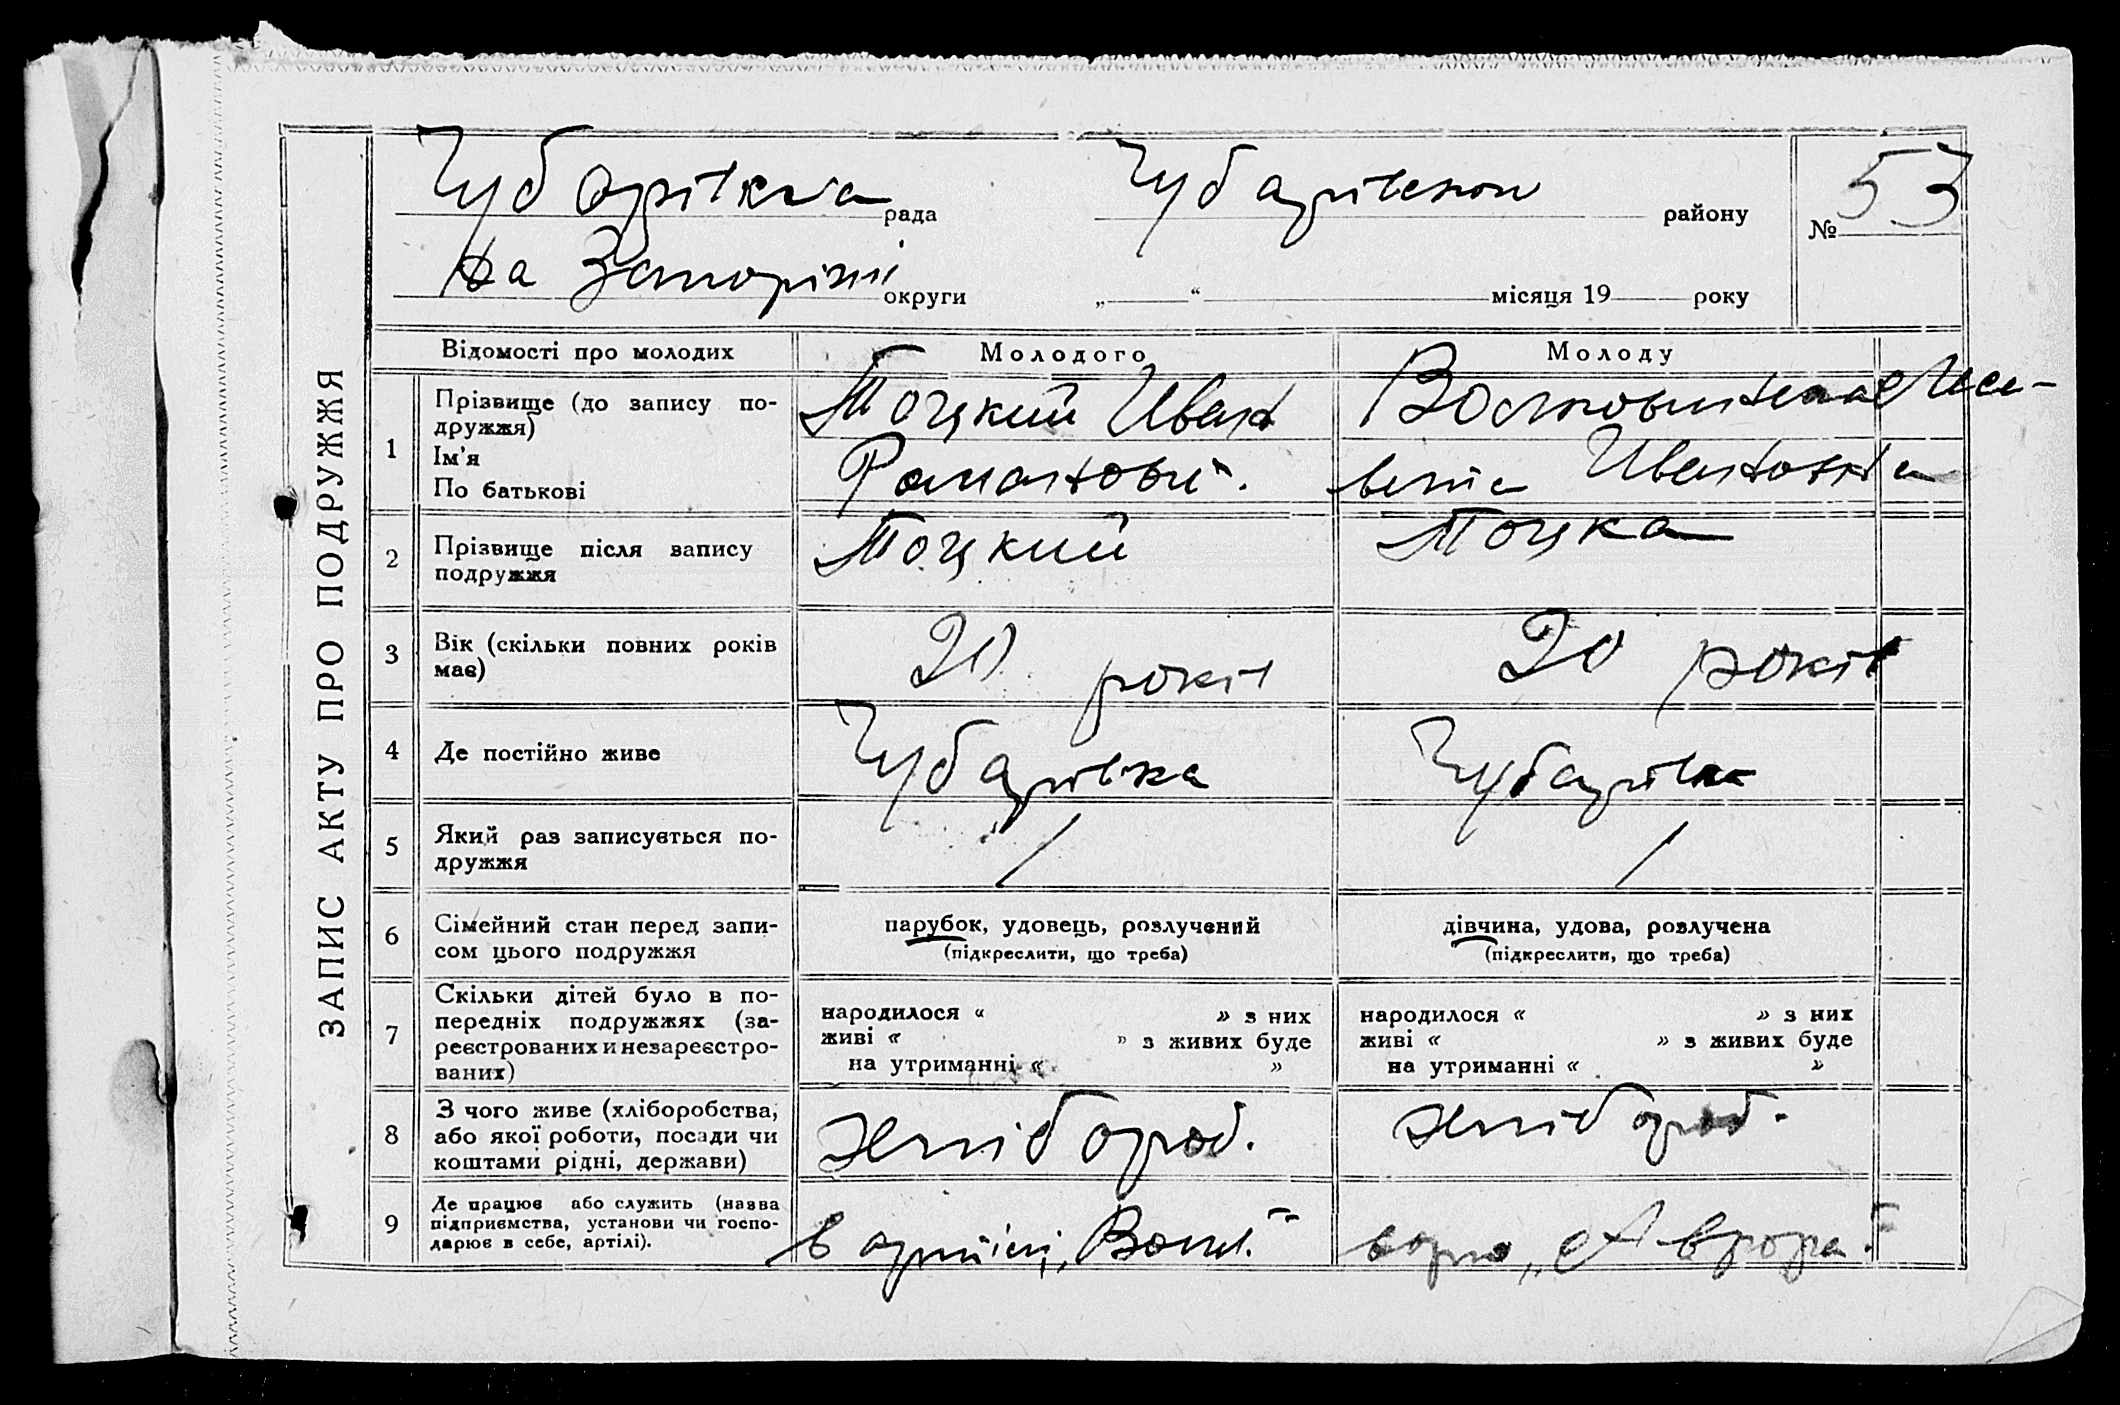 ЗАПИС АКТУ ПРО ПОДРУЖЖЯ
Чубарівська рада Чубарівськ району № 53
на Запоріжі округи „ “ місяця 19 року
Відомості про молодих Молодого Молоду
1 Прізвище (до запису по-
дружжя)
Ім'я
По батькові
Тоцкий Иван
Романович.
Ели-
вета Ивановна
2 Прізвище після запису
подружжя
Тоцкий
Тоцка
3 Вік (скільки повних років
має)
20 років
20 років
4 Де постійно живе
Чубарівка
Чубарівка
5 Який раз записується по-
дружжя
/
/
6 Сімейний стан перед запи-
сом цього подружжя
парубок, удовець, розлучений
(підкреслити, що треба)
дівчина, удова, розлучена
(підкреслити, що треба)
7 Скільки дітей було в по-
передніх подружжях (за-
реєстрованих и незареєстро-
ваних)
народилося « » з них
живі « » з живих буде
на утриманні « »
народилося « » з них
живі « » з живих буде
на утриманні « »
8 З чого живе (хліборобства,
або якої роботи, посади чи
коштами рідні, держави)
хлібороб.
хлібороб.
9 Де працює або служить (назва
підприємства, установи чи госпо-
дарює в себе, артілі).
в артілі
„Аврора"